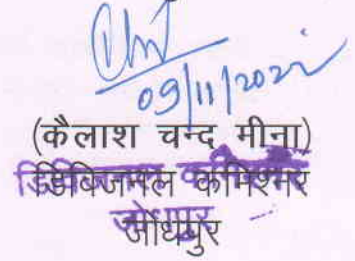 09/11/2022
(कैलाश चन्द मीना)
डिविजनल कमिश्नर
जोधपुर